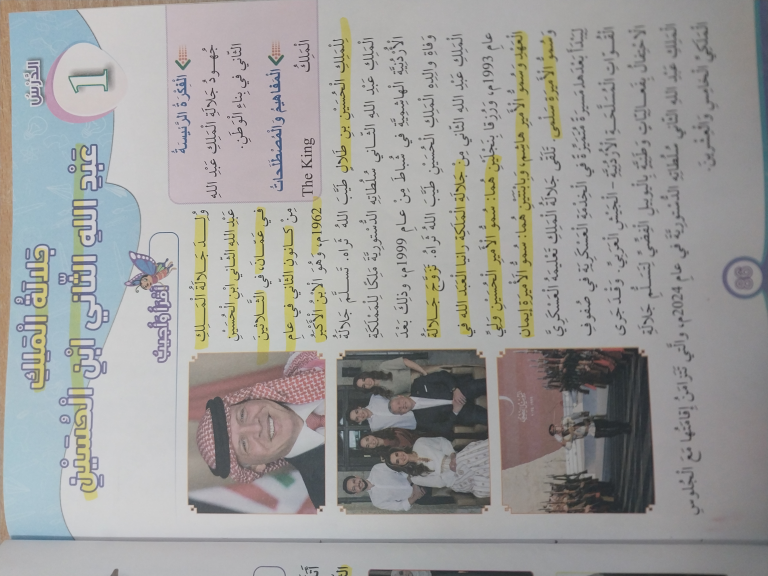 الدَّرْسُ
1
جَلالَةُ الْمَلِكِ
عَبْدِ اللهِ الثّاني ابْنِ الْحُسَيْنِ
الْفِكْرَةُ الرَّئيسَةُ
جُهودُ جَلالَةِ الْمَلِكِ عَبْدِ اللهِ
الثّاني في بِناءِ الْوَطَنِ.
الْمَفاهيمُ وَالْمُصْطَلَحاتُ
الْمَلِكُ The King
أَقْرَأُ وَأُجيبُ
وُلِـدَ جَلالَةُ الْمَـلِكِ
عَبْدِ اللهِ الثّاني ابْنِ الْحُسَيْنِ
فـي عَمّـانَ، في الثَّـلاثينَ
مِنْ كانونَ الثّاني في عامِ
1962م، وَهُوَ الِابْنُ الْأَكْبَرُ
لِلْمَلِكِ الْحُسَيْنِ بْنِ طَلالٍ طَيَّبَ اللهُ ثَراهُ. تَسَلَّمَ جَلالَةُ
الْمَلِكِ عَبْدِ اللهِ الثّـاني سُلُطاتِهِ الدُّسْتورِيَّةَ مَلِكًا لِلْمَمْلَكَةِ
الْأُرْدُنِّيَّةِ الْهاشِمِيَّةِ في شُباطَ مِنْ عامِ 1999م، وَذلِكَ بَعْدَ
وَفاةِ والِدِهِ الْمَلِكِ الْحُسَيْنِ طَيَّبَ اللهُ ثَراهُ. تَزَوَّجَ جَـلالَةُ
الْمَلِكِ عَبْدِ اللهِ الثّاني مِنْ جَلالَةِ الْمَلِكَةِ رانْيا الْعَبْدِ اللهِ في
عامِ 1993م، وَرُزِقا بِنَجْلَيْنِ هُما: سُمُوُّ الْأَميرِ الْحُسَيْنِ وَلِيُّ
الْعَهْدِ وَسُمُوُّ الْأَميرِ هاشِمٍ، وَبِابْنَتَيْنِ هُما: سُمُوُّ الْأَميرَةِ إيمانَ
وَسُمُوُّ الْأَميرَةِ سَلْمى. تَلَقّى جَلالَةُ الْمَلِكِ تَعْليمَهُ الْعَسْكَرِيَّ
لِيَبْدَأَ بَعْدَهـا مَسيـرَةً مُتَمَيِّزَةً في الْخِدْمَةِ الْعَسْكَرِيَّةِ في صُفوفِ
الْقُـوّاتِ الْمُسَلَّحَـةِ الْأُرْدُنِّيَّةِ - الْجَيْشِ الْعَرَبِيِّ. وَقَـدْ جَرى
الِاحْتِفالُ بِفَعـالِيّاتٍ وَطَنِيَّةٍ بِالْيوبيلِ الْفِضِّيِّ لِتَسَلُّمِ جَلالَةِ
الْمَلِكِ عَبْدِ اللهِ الثّاني سُلُطاتِهِ الدُّسْتورِيَّةَ في عامِ 2024م، وَالَّتي تَتَزامَنُ إِقامَتُها مَعَ الْجُلوسِ
الْمَلَكِيِّ الْخامِسِ وَالْعِشْرينَ.